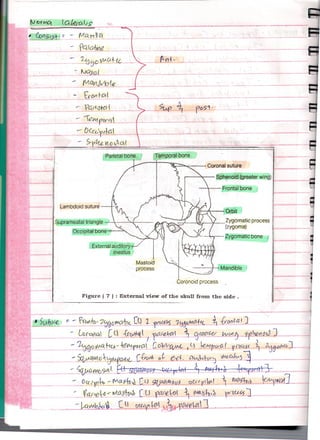 Norma lateralis
• Consist: - Maxilla
- Palatine
- Zygomatic
Ant.
- Nasal
- Mandible
- Frontal
- Parietal
Sup & post.
- Temporal
- Occipital
- Sphenoidal
Parietal bone
Temporal bone
Coronal suture
Sphenoid (greater wing)
Frontal bone
Lambdoid suture
Orbit
Supramastoid triangle
Zygomatic process (zygoma)
Occipital bone
Zygomatic bone
External auditory meatus
Mastoid process
Mandible
Coronoid process
Figure ( 7 ) : External view of the skull from the side .
• Suture: - Fronto-zygomatic [ process zygomatic & frontal ]
- Coronal [ frontal, parietal & greater wing sphenoid ]
- Zygomatico-temporal [ oblique, temporal process & zygoma ]
- Squamotympanic [ of ext. auditory meatus ]
- Squamosal
- Occipito-Mastoid [ squamous occipital & mastoid temporal ]
- Parieto-Mastoid [ parietal & mastoid process ]
- Lambdoid [ occipital & parietal ]